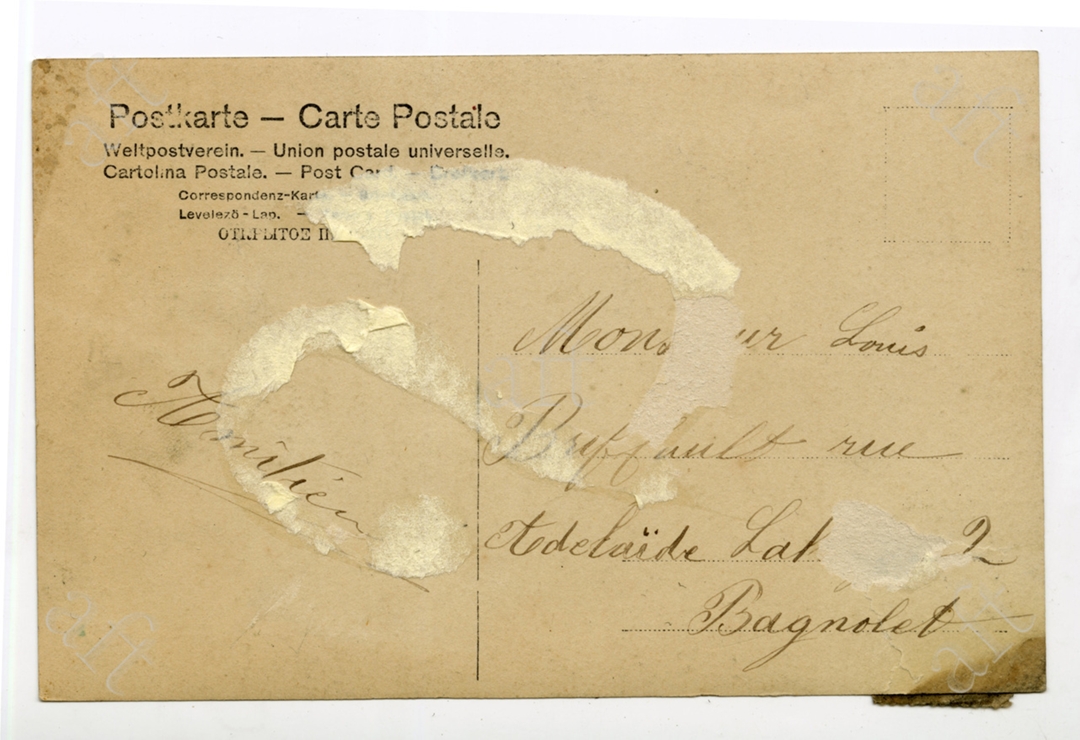 Postkarte — Carte Postale
Weltpostverein. — Union postale universelle.
Cartolina Postale. — Post
Correspondenz-Kart
Levelező-Lap. —
ОТКРЫТОЕ П
Mons ur Louis
rue
Adelaïde Lah 2
Bagnolet